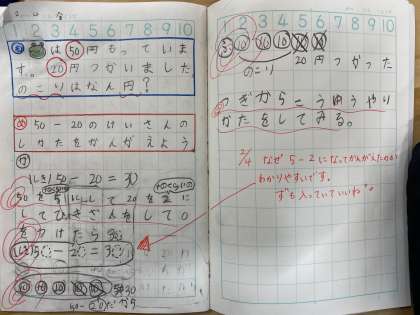 1 2 3 4 5 6 7 8 9 10
は50円もっていま
す。20円つかいました
のこりはなん円?
め
50-20のけいさんの
しかたをかんがえよう
しき50-20=30
50を5にして20を2に
してひきざんをして0
をかけたら30
しき50-20=30
10 10 10 10 10
1 2 3 4 5 6 7 8 9 10
10 10 10
のこり
20円つかった
つぎからこうゆうやり
かたをしてみる。
2/4 なぜ5-2になってかんがえたのか
わかりやすいです。
ずも入っていていいね